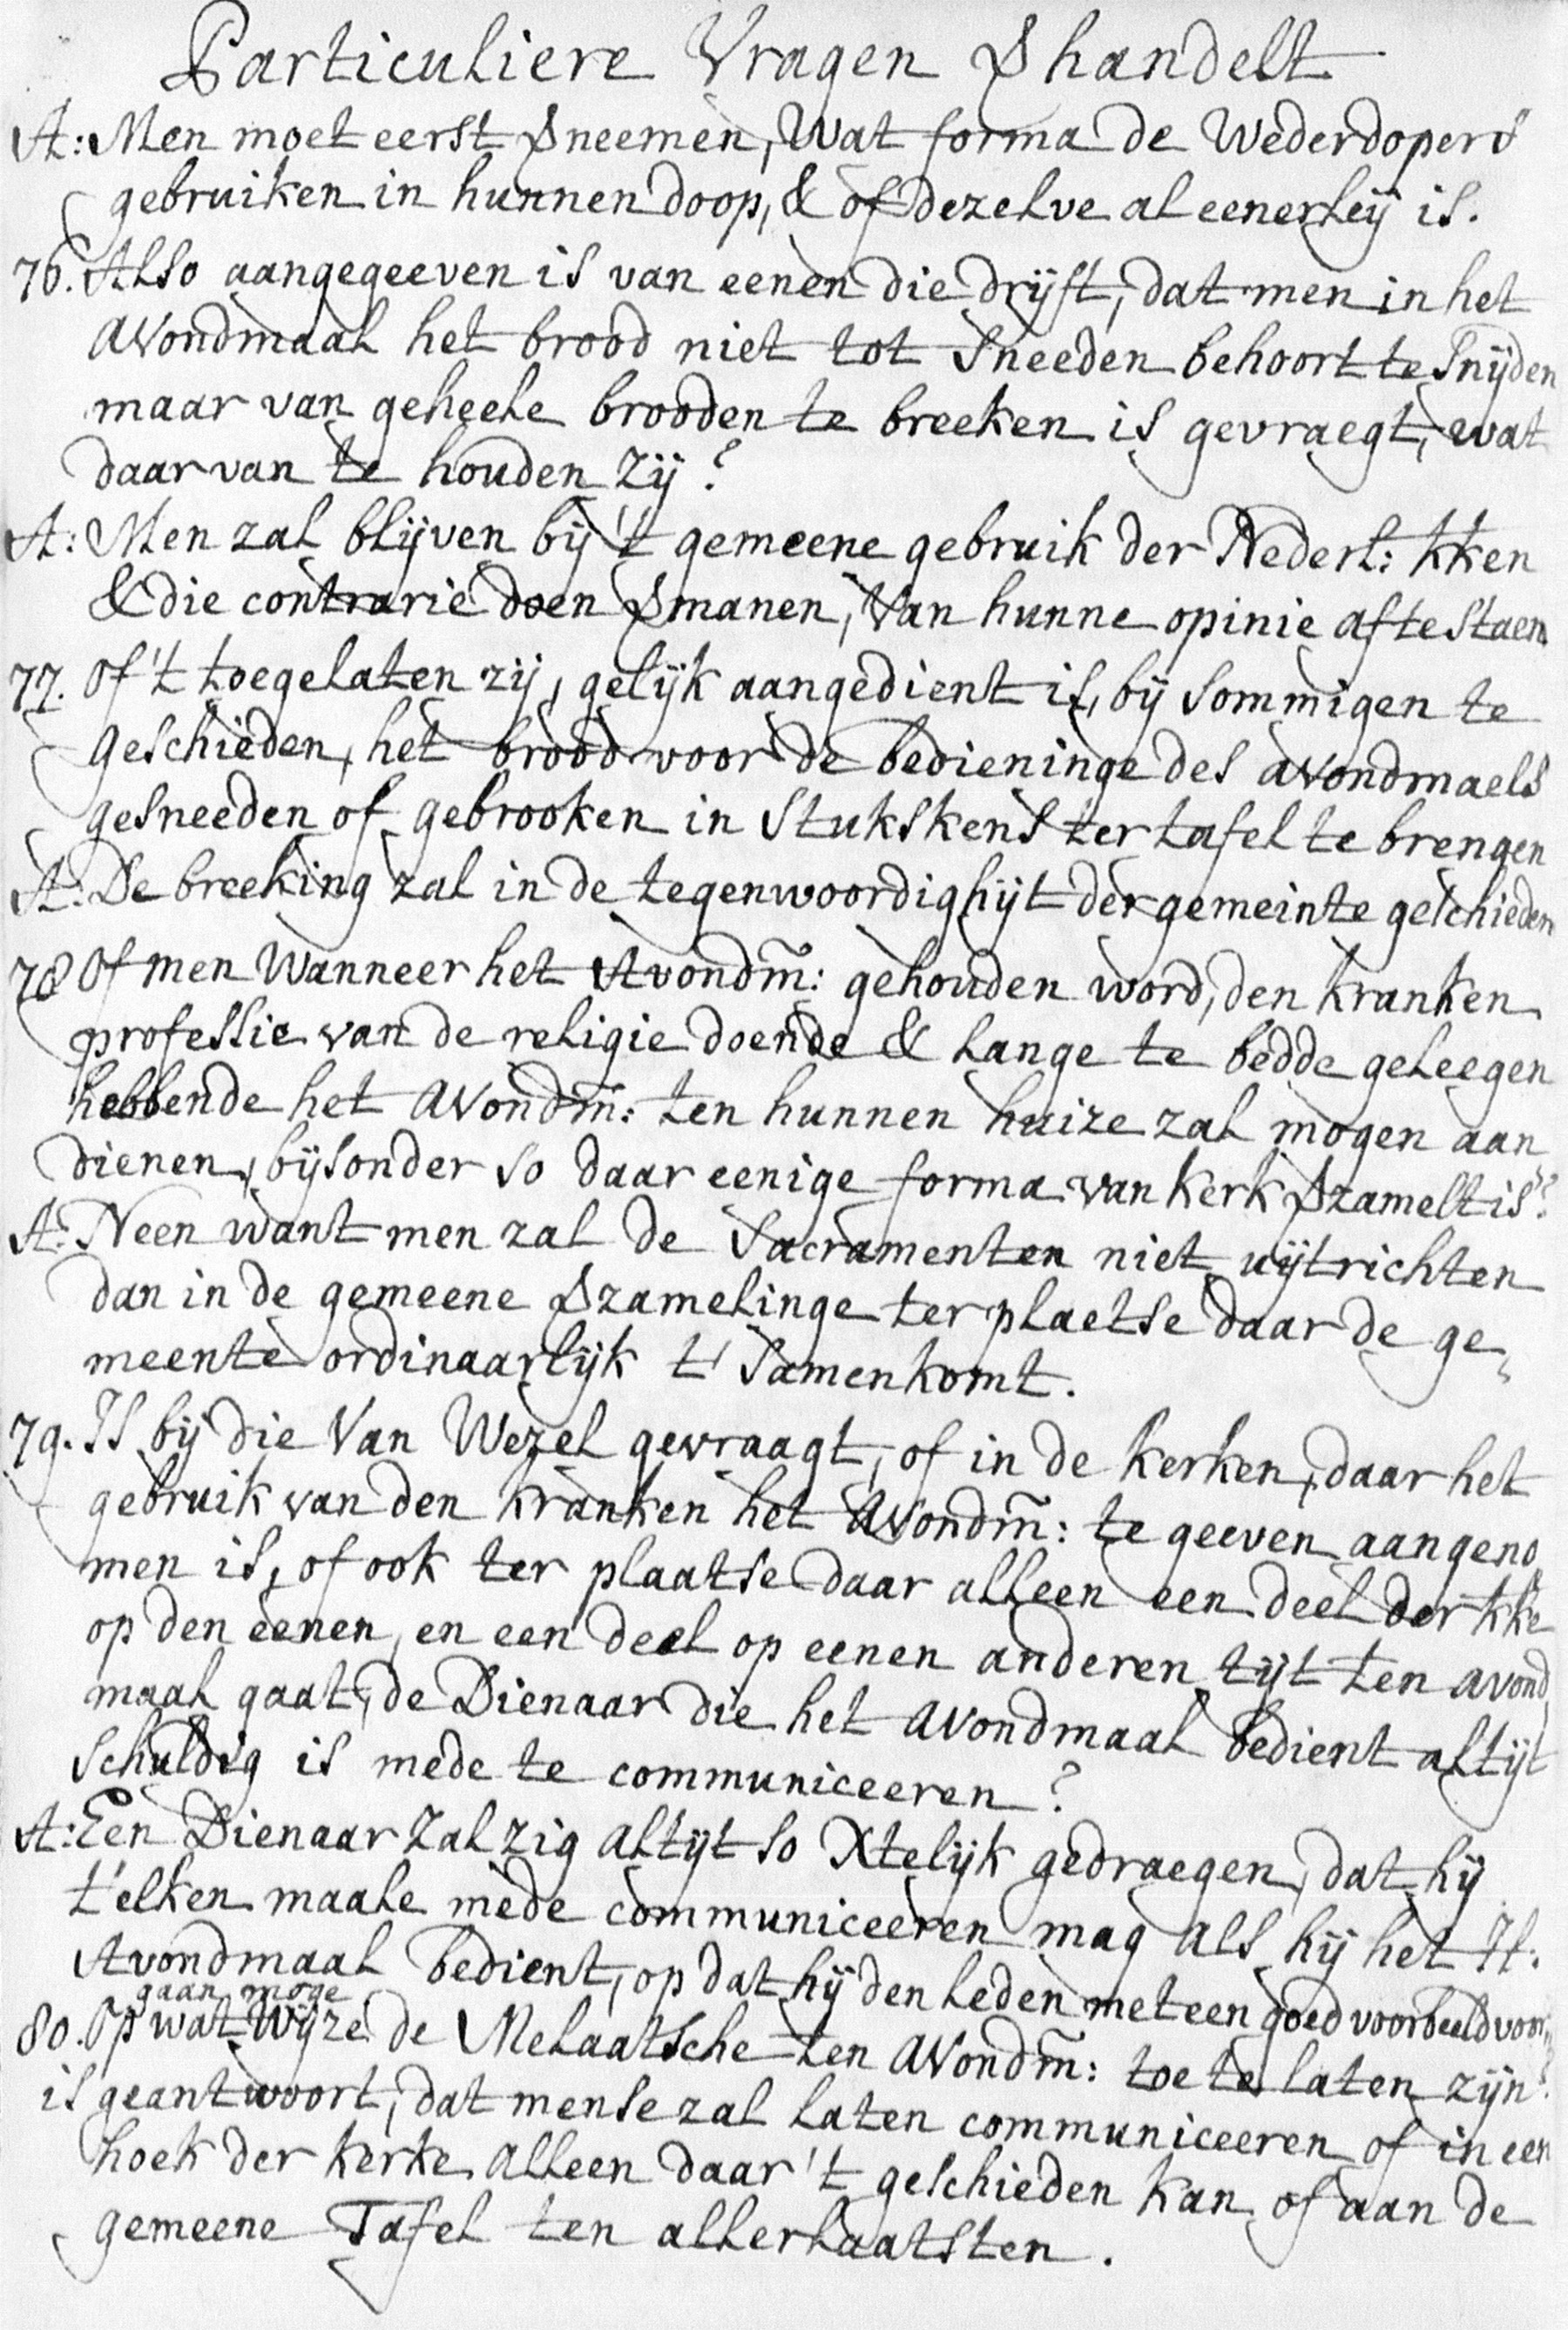 Particuliere Vragen Ꝟhandelt
A: Men moet eerst Ꝟneemen, wat forma de Wederdopers
gebruiken in hunnen doop, & of dezelve al eenerleÿ is.
76. Also aangegeeven is van eenen die drÿft, dat men in het
avondmaal het brood niet tot sneeden behoort te snÿden
maar van geheele brooden te breeken is gevraegt, wat
daar van te houden zÿ?
A: Men zal blÿven bÿ 't gemeene gebruik der Nederl: kken
& die contrarie doen Ꝟmanen, van hunne opinie af te staen
77. Of 't toegelaten zij, gelÿk aangedient is, bÿ sommigen te
geschieden, het brood voor de bedieninge des avondmaels
gesneeden of gebrooken in stukskens ter tafel te brengen
A: De breeking zal in de tegenwoordighÿt der gemeinte geschieden
78 Of men wanneer het Avondm̃: gehouden word, den kranken
professie van de religie doende & lange te bedde geleegen
hebbende het avondm̃: ten hunnen huize zal mogen aan
dienen, bÿsonder so daar eenige forma van kerk Ꝟzamelt is?
A: Neen want men zal de Sacramenten niet uÿtrichten
dan in de gemeene Ꝟzamelinge ter plaetse daar de ge„
meente ordinaarlÿk t' samenkomt.
79. Is bÿ die van Wezel gevraagt, of in de kerken, daar het
gebruik van den kranken het avondm̃: te geeven aangeno„
men is, of ook ter plaatse daar alleen een deel der kke
op den eenen, en een deel op eenen anderen tÿt ten avond
maal gaat, de Dienaar die het avondmaal bedient altÿt
schuldig is mede te communiceeren?
A: Een Dienaar zal zig altÿt so Xtelÿk gedraegen, dat hÿ
t'elken maale mede communiceeren mag als hÿ het H:
Avondmaal bedient, op dat hÿ den leden met een goed voorbeeld voor„
gaan moge
80. Op wat wÿze de Melaatsche ten avondm̃: toe te laten zÿn?
is geantwoort, dat mense zal laten communiceeren of in een
hoek der kerke alleen daar 't geschieden kan, of aan de
gemeene Tafel ten allerlaatsten.